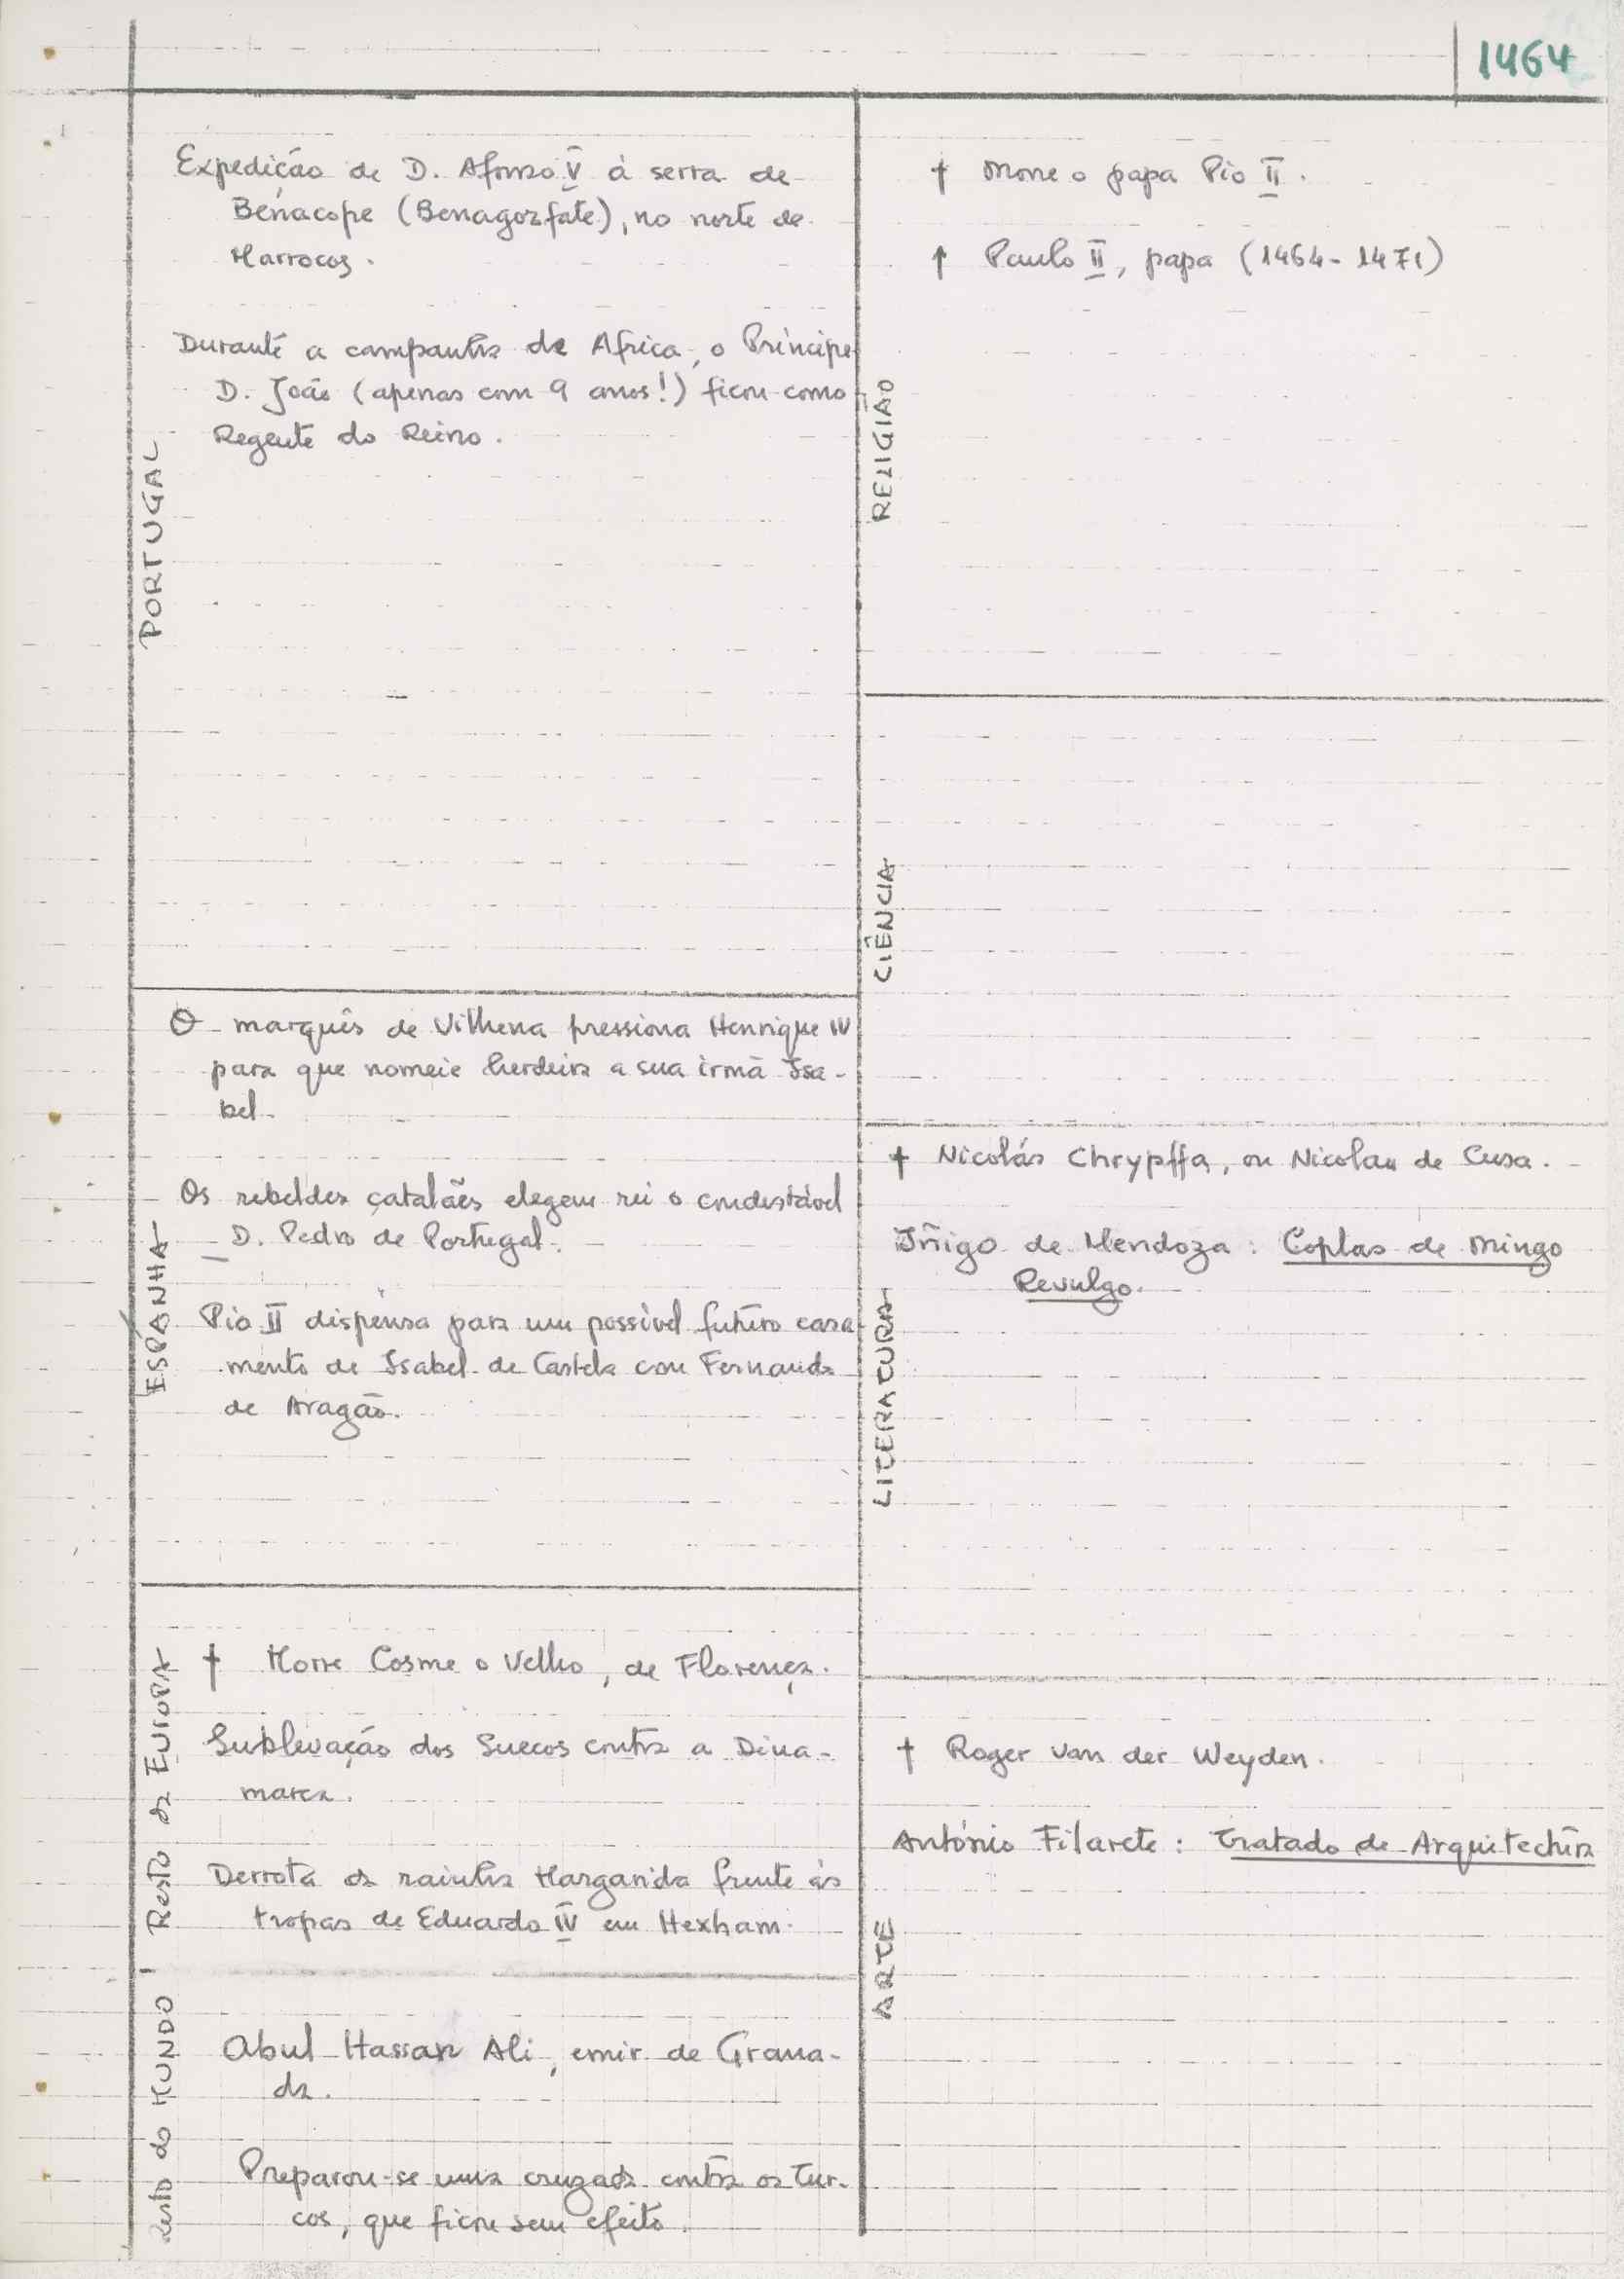 1464
PORTUGAL
Expedição de D. Afonso V à serra de
Benacope (Benagozfate), no norte de
Marrocos.
Durante a campanha de Africa, o Príncipe
D. João (apenas com 9 anos!) ficou como
Regente do Reino.
ESPANHA
O marquês de Vilhena pressiona Henrique IV
para que nomeie herdeira a sua irmã Isa-
bel.
Os rebeldes catalães elegem rei o condestável
D. Pedro de Portugal.
Pio II dispensa para um possível futuro casa
mento de Isabel de Castela com Fernando
de Aragão.
Resto da EUROPA
† Morre Cosme o Velho, de Florença.
Sublevação dos Suecos contra a Dina-
marca.
Derrota da rainha Margarida frente às
tropas de Eduardo IV em Hexham.
Resto do MUNDO
Abul Hassan Ali, emir de Grana-
da.
Preparou-se uma cruzada contra os Tur-
cos, que ficou sem efeito.
RELIGIÃO
† Morre o papa Pio II.
↑ Paulo II, papa (1464-1471)
CIÊNCIA
LITERATURA
† Nicolás Chrypffa, ou Nicolau de Cusa.
Iñigo de Mendoza: Coplas de Mingo
Revulgo.
ARTE
† Roger van der Weyden.
António Filarete: Tratado de Arquitectura